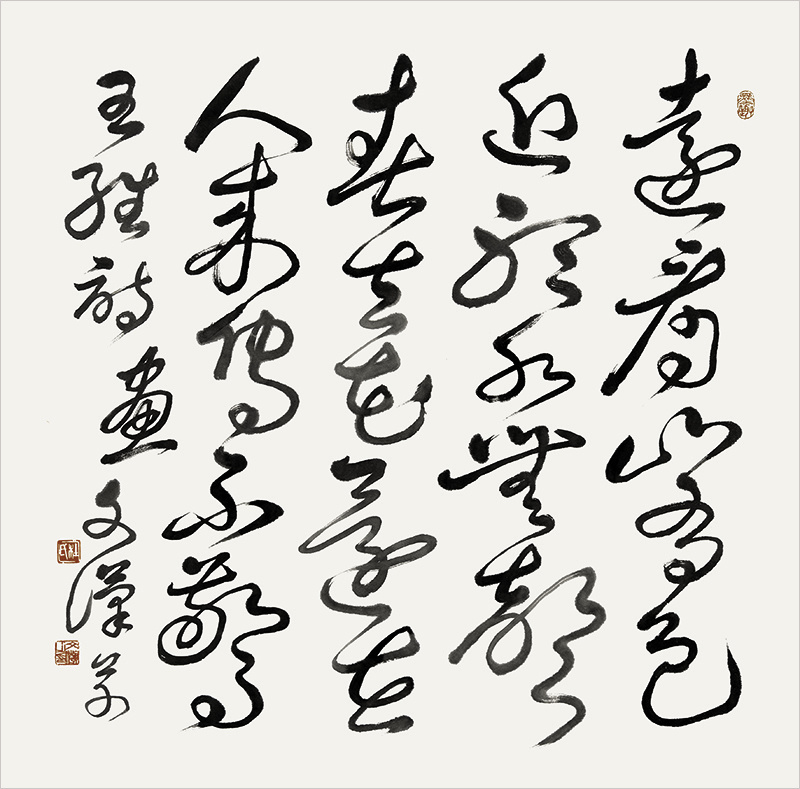 遠看山有色
近聽水無聲
春去花還在
人來鳥不驚
王維詩畫 文漢草
杜氏